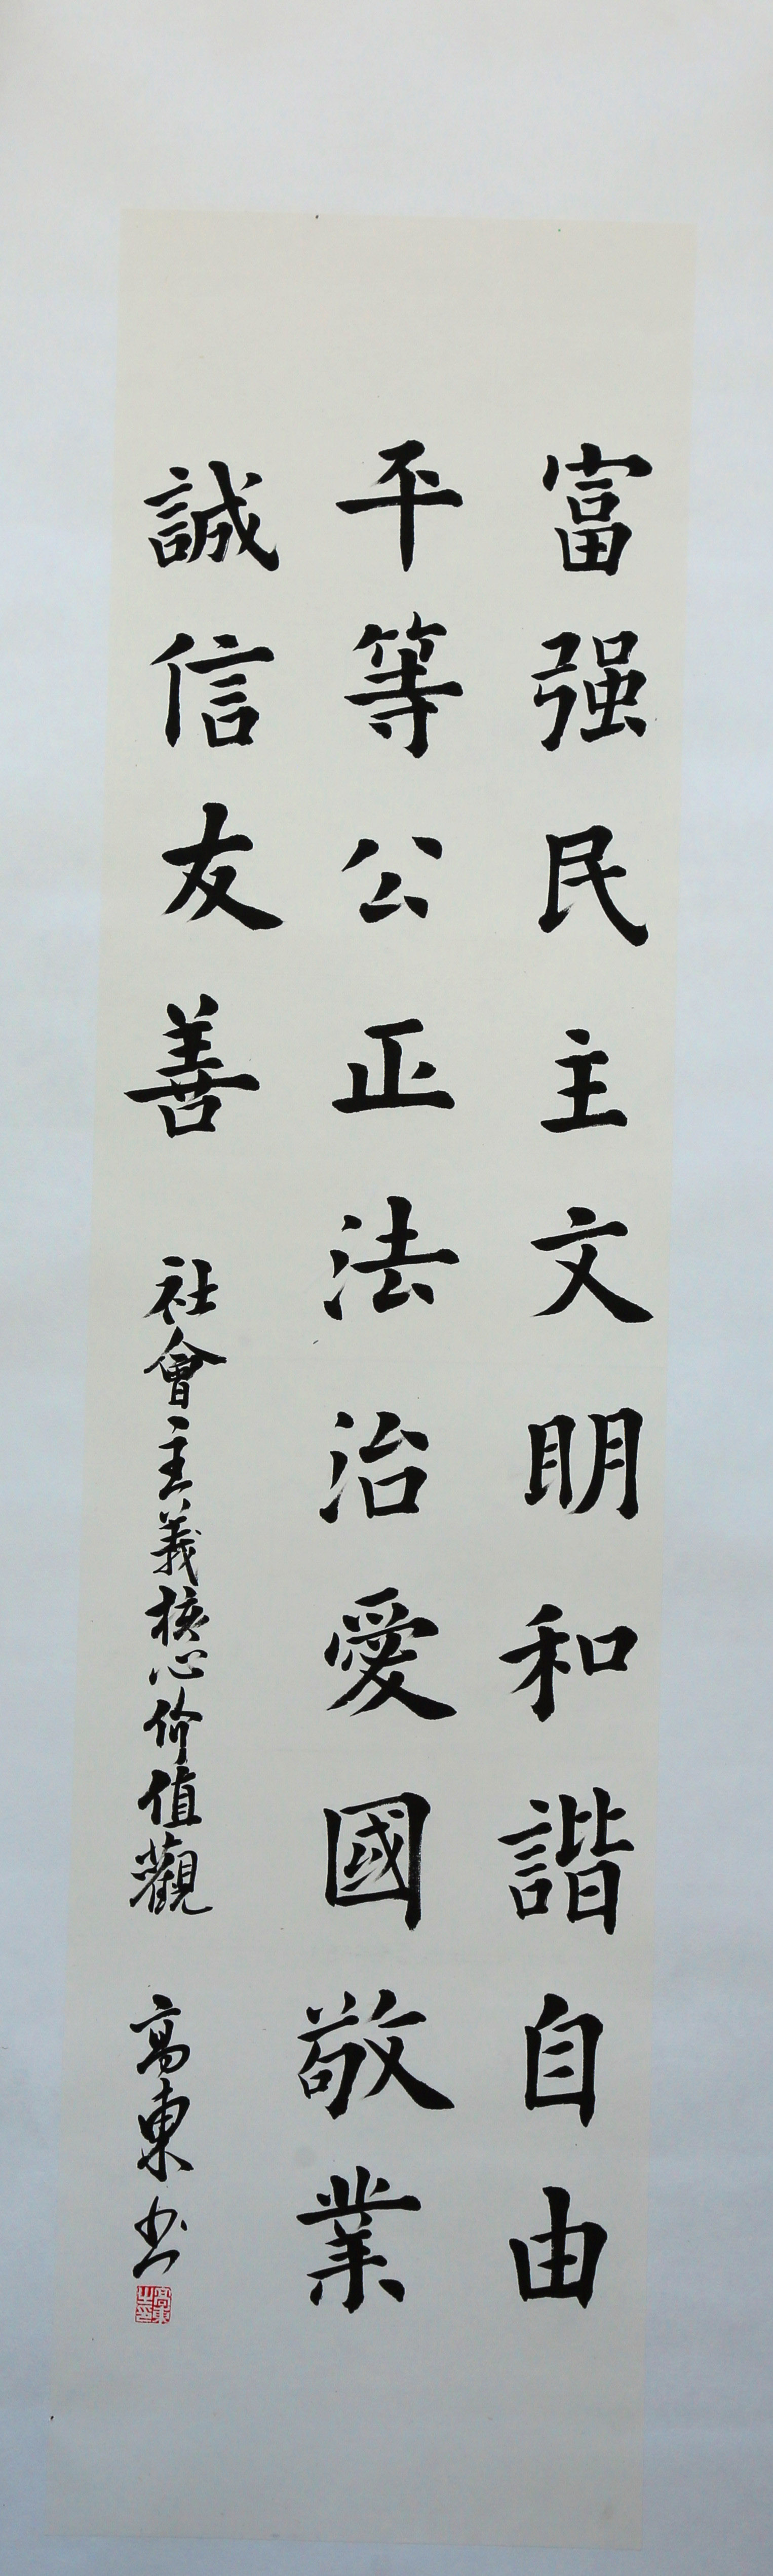 富强民主文明和諧自由
平等公正法治愛國敬業
誠信友善 社會主義核心价值觀 高東书
高東之印